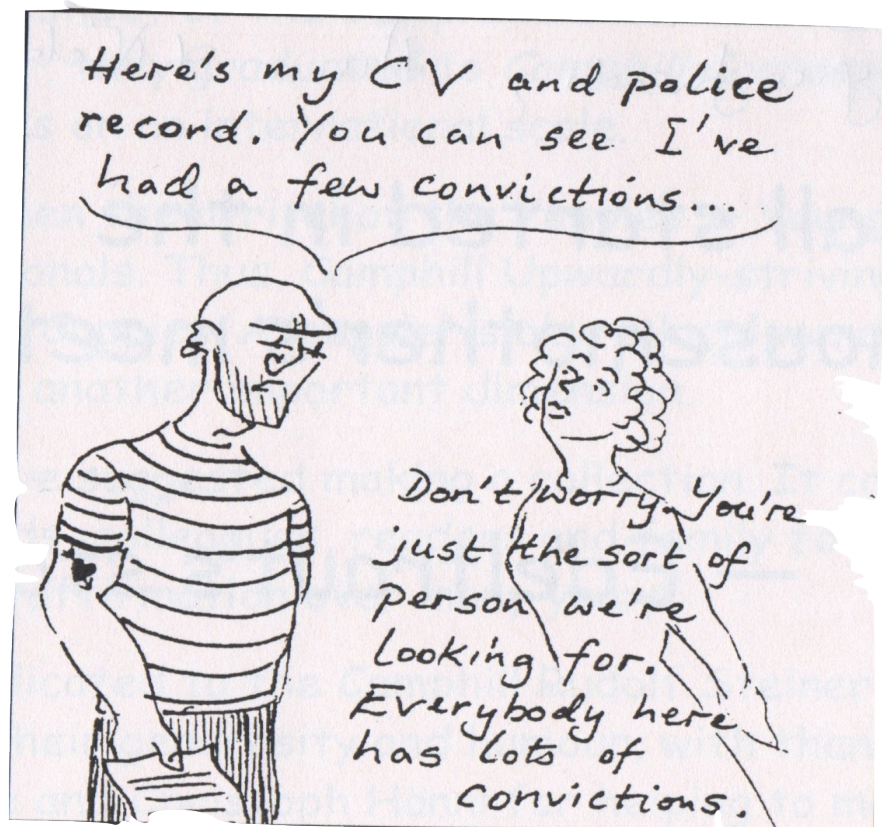 Here's my CV and police
record. You can see I've
had a few convictions...
Don't worry. You're
just the sort of
person we're
looking for.
Everybody here
has lots of
convictions.